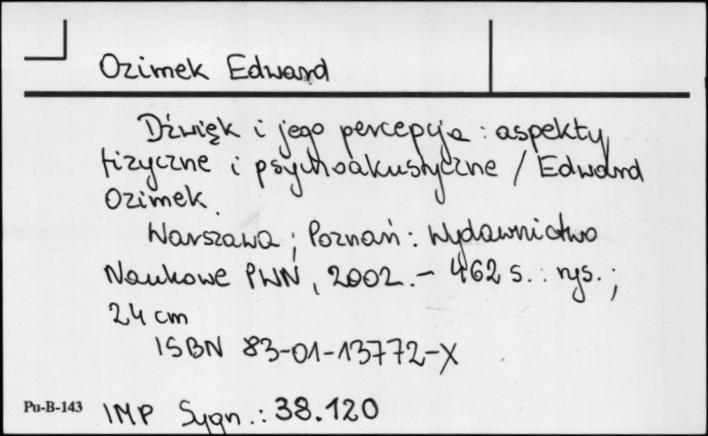 Ozimek Edward
Dźwięk i jego percepcja : aspekty
fizyczne i psychoakustyczne / Edward
Ozimek.
Warszawa ; Poznań : Wydawnictwo
Naukowe PWN, 2002. – 462 s. : rys. ;
24 cm
ISBN 83-01-13772-X
Pu-B-143 IMP Sygn. : 38.120